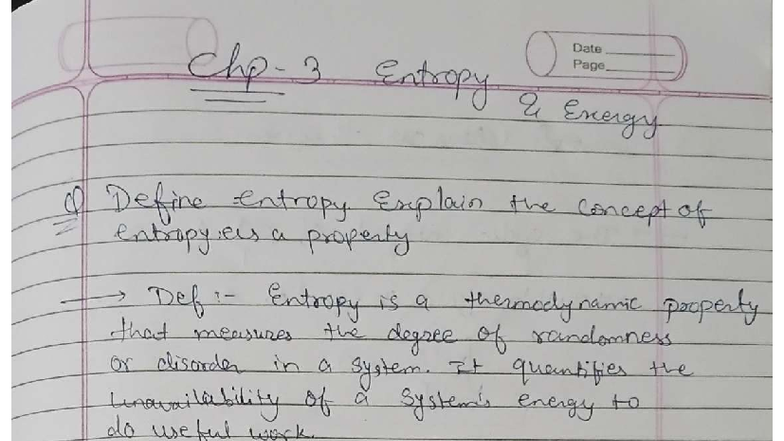 Date
Page
Chp-3 Entropy
& Exergy
Q Define entropy. Explain the concept of
entropy as a property
→ Def :- Entropy is a thermodynamic property
that measures the degree of randomness
or disorder in a system. It quantifies the
unavailability of a system's energy to
do useful work.